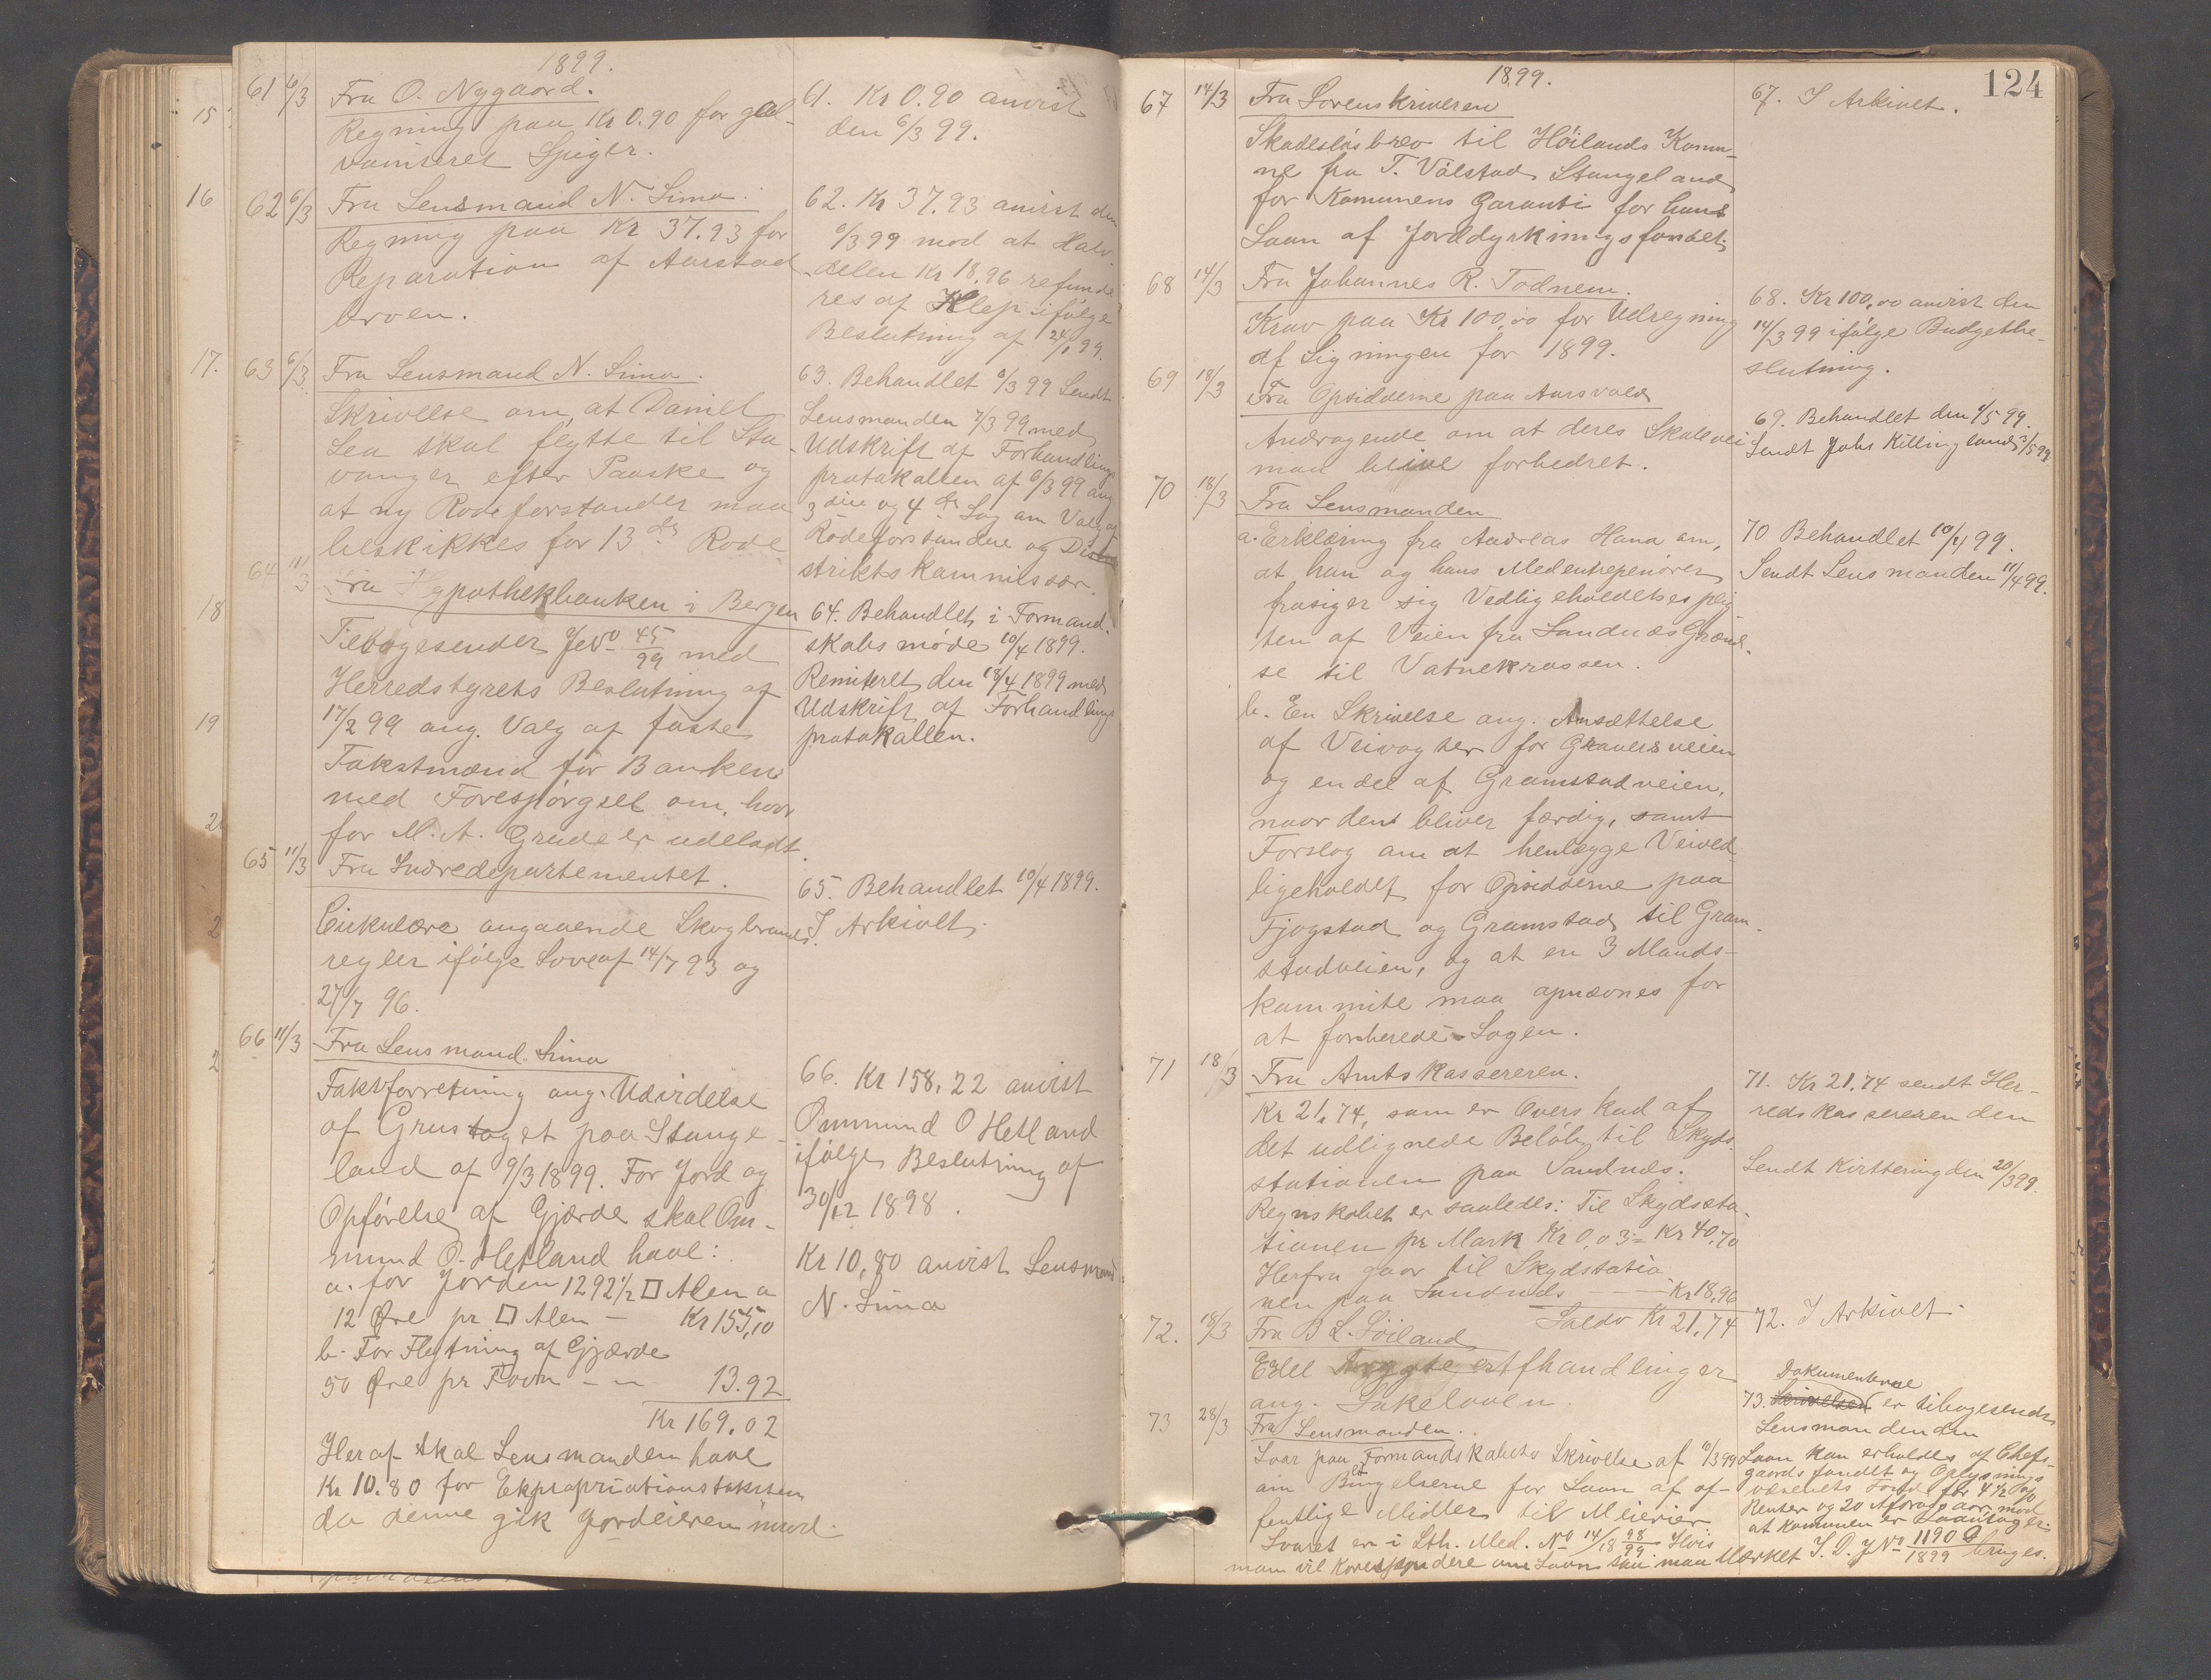 1899.
61 6/3 Fra O. Nygaard.
Regning paa Kr 0.90 for gal-
vaniseret Spiger.
61. Kr 0.90 anvist
den 6/3 99.
62 6/3 Fra Lensmand N. Lima.
Regning paa Kr 37.93 for
Reparation af Aarstad
broen.
62. Kr 37.93 anvist den
6/3 99 mod at Halv-
delen Kr 18.96 refunde
res af Klep ifølge
Beslutning af
63 6/3 Fra Lensmand N. Lima.
Skrivelse om, at Daniel
Lea skal flytte til Sta
vanger efter Paaske og
at ny Rodeforstander maa
beskikkes for 13 de Rode
63. Behandlet 6/3 99 Sendt
Lensmanden 7/3 99 med
Udskrift af Forhandlings
protokollen af 6/3 99 ang
3 die og 4 de Sag om Valg af
Rodeforstandere og Di
striktskommissær.
64 11/3 Fra Hypothekbanken i Bergen
Tilbagesender JNo 45/99 med
Herredstyrets Beslutning af
17/2 99 ang. Valg af faste
Takstmænd for Banken
med Forespørgsel om, hvor
for M. A. Grude er udeladt.
64. Behandlet i Formand-
skabsmøde 10/4 1899.
Remiteret den 18/4 1899 med
Udskrift af Forhandlings
protokollen.
65 11/3 Fra Indredepartementet.
Cirkulære angaaende Skogbrands
regler ifølge Love af 14/7 93 og
27/7 96.
65. Behandlet 10/4 1899.
I Arkivet.
66 11/3 Fra Lensmand Lima
Takstforretning ang. Udvirdelse
af Grustaget paa Stange-
land af 9/3 1899. For Jord og
Opførelse af Gjærde skal Om-
mund O. Hetland have:
a. for Jorden 1292 1/2 □ Alen a
12 Øre pr □ Alen — Kr 155,10
b. For Flytning af Gjærde
50 Øre pr Favn - - 13.92
Kr 169.02
Heraf skal Lensmanden have
Kr 10.80 for Expropriationstaksten
da denne gik Jordeieren imod.
66. Kr 158.22 anvist
Ommund O Hetland
ifølge Beslutning af
30/12 1898.
Kr 10.80 anvist Lensmand
N. Lima
124
1899.
67 14/3 Fra Sorenskriveren
Skadesløsbrev til Höilands Kommu-
ne fra T. Vølstad Stangeland
for Kommunens Garanti for hans
Laan af Jorddyrkningsfondet.
67. I Arkivet.
68 14/3 Fra Johannes R. Todnem.
Krav paa Kr 100,00 for Udregning
af Ligningen for 1899.
68. Kr 100,00 anvist den
14/3 99 ifølge Budgetbe-
slutning.
69 18/3 Fra Opsidderne paa Aarsvold
Andragende om at deres Skolevei
maa blive forbedret.
69. Behandlet den 1/5 99.
Sendt Johs Killingland 3/5 99
70 18/3 Fra Lensmanden
a. Erklæring fra Andreas Hana om,
at han og hans Medentrepenører
frasiger sig Vedligeholdelsesplig
ten af Veien fra Sandnæs Grænd-
se til Vatnekrossen.
b. En Skrivelse ang. Ansættelse
af Veivogter for Graversveien
og en del af Gramstadveien,
naar den bliver færdig, samt
Forslag om at henlægge Veived
ligeholdet for Opsidderne paa
Fjogstad og Gramstad til Gram-
stadveien, og at en 3 Mands-
kommite maa opnævnes for
at forberede Sagen.
70 Behandlet 10/4 99.
Sendt Lensmanden 11/4 99.
71 18/3 Fra Amtskassereren.
Kr 21.74, som er Overskud af
det udlignede Beløb til Skyds-
stationen paa Sandnæs.
Regnskabet er saaledes: Til Skydssta-
tionen pr Mark Kr 0,03 = Kr 40,70
Herfra gaar til Skydsstatio
nen paa Sandnæs - - - Kr 18,96
Saldo Kr 21.74
71. Kr 21.74 sendt Her-
redskassereren den
Sendt Kvittering den 20/3 99.
72. 18/3 Fra B L. Löiland
Exll Trygte Afhandlinger
ang. Lakseloven.
72. I Arkivet.
73 28/3 Fra Lensmanden.
Svar paa Formandskabets Skrivelse af 10/3 99
om Betingelserne for Laan af of-
fentlige Midler til Meierier
Svaret er i Sth. Med. No 14/18 98/99 Hvis
man vil korespondere om Laan saa maa Mærket I. D. J No 1190 D/1899 bruges.
Dokumenterne
73. Skrivelsen er tilbagesendt
Lensmanden den
Laan kan erholdes af Chefs-
gaards fondet og Oplysnings
væsenets Fond for 4 1/2 %
Renter og 20 Afdrags aar, mod
at Kommunen er Laantager.
15
16
17.
18
19